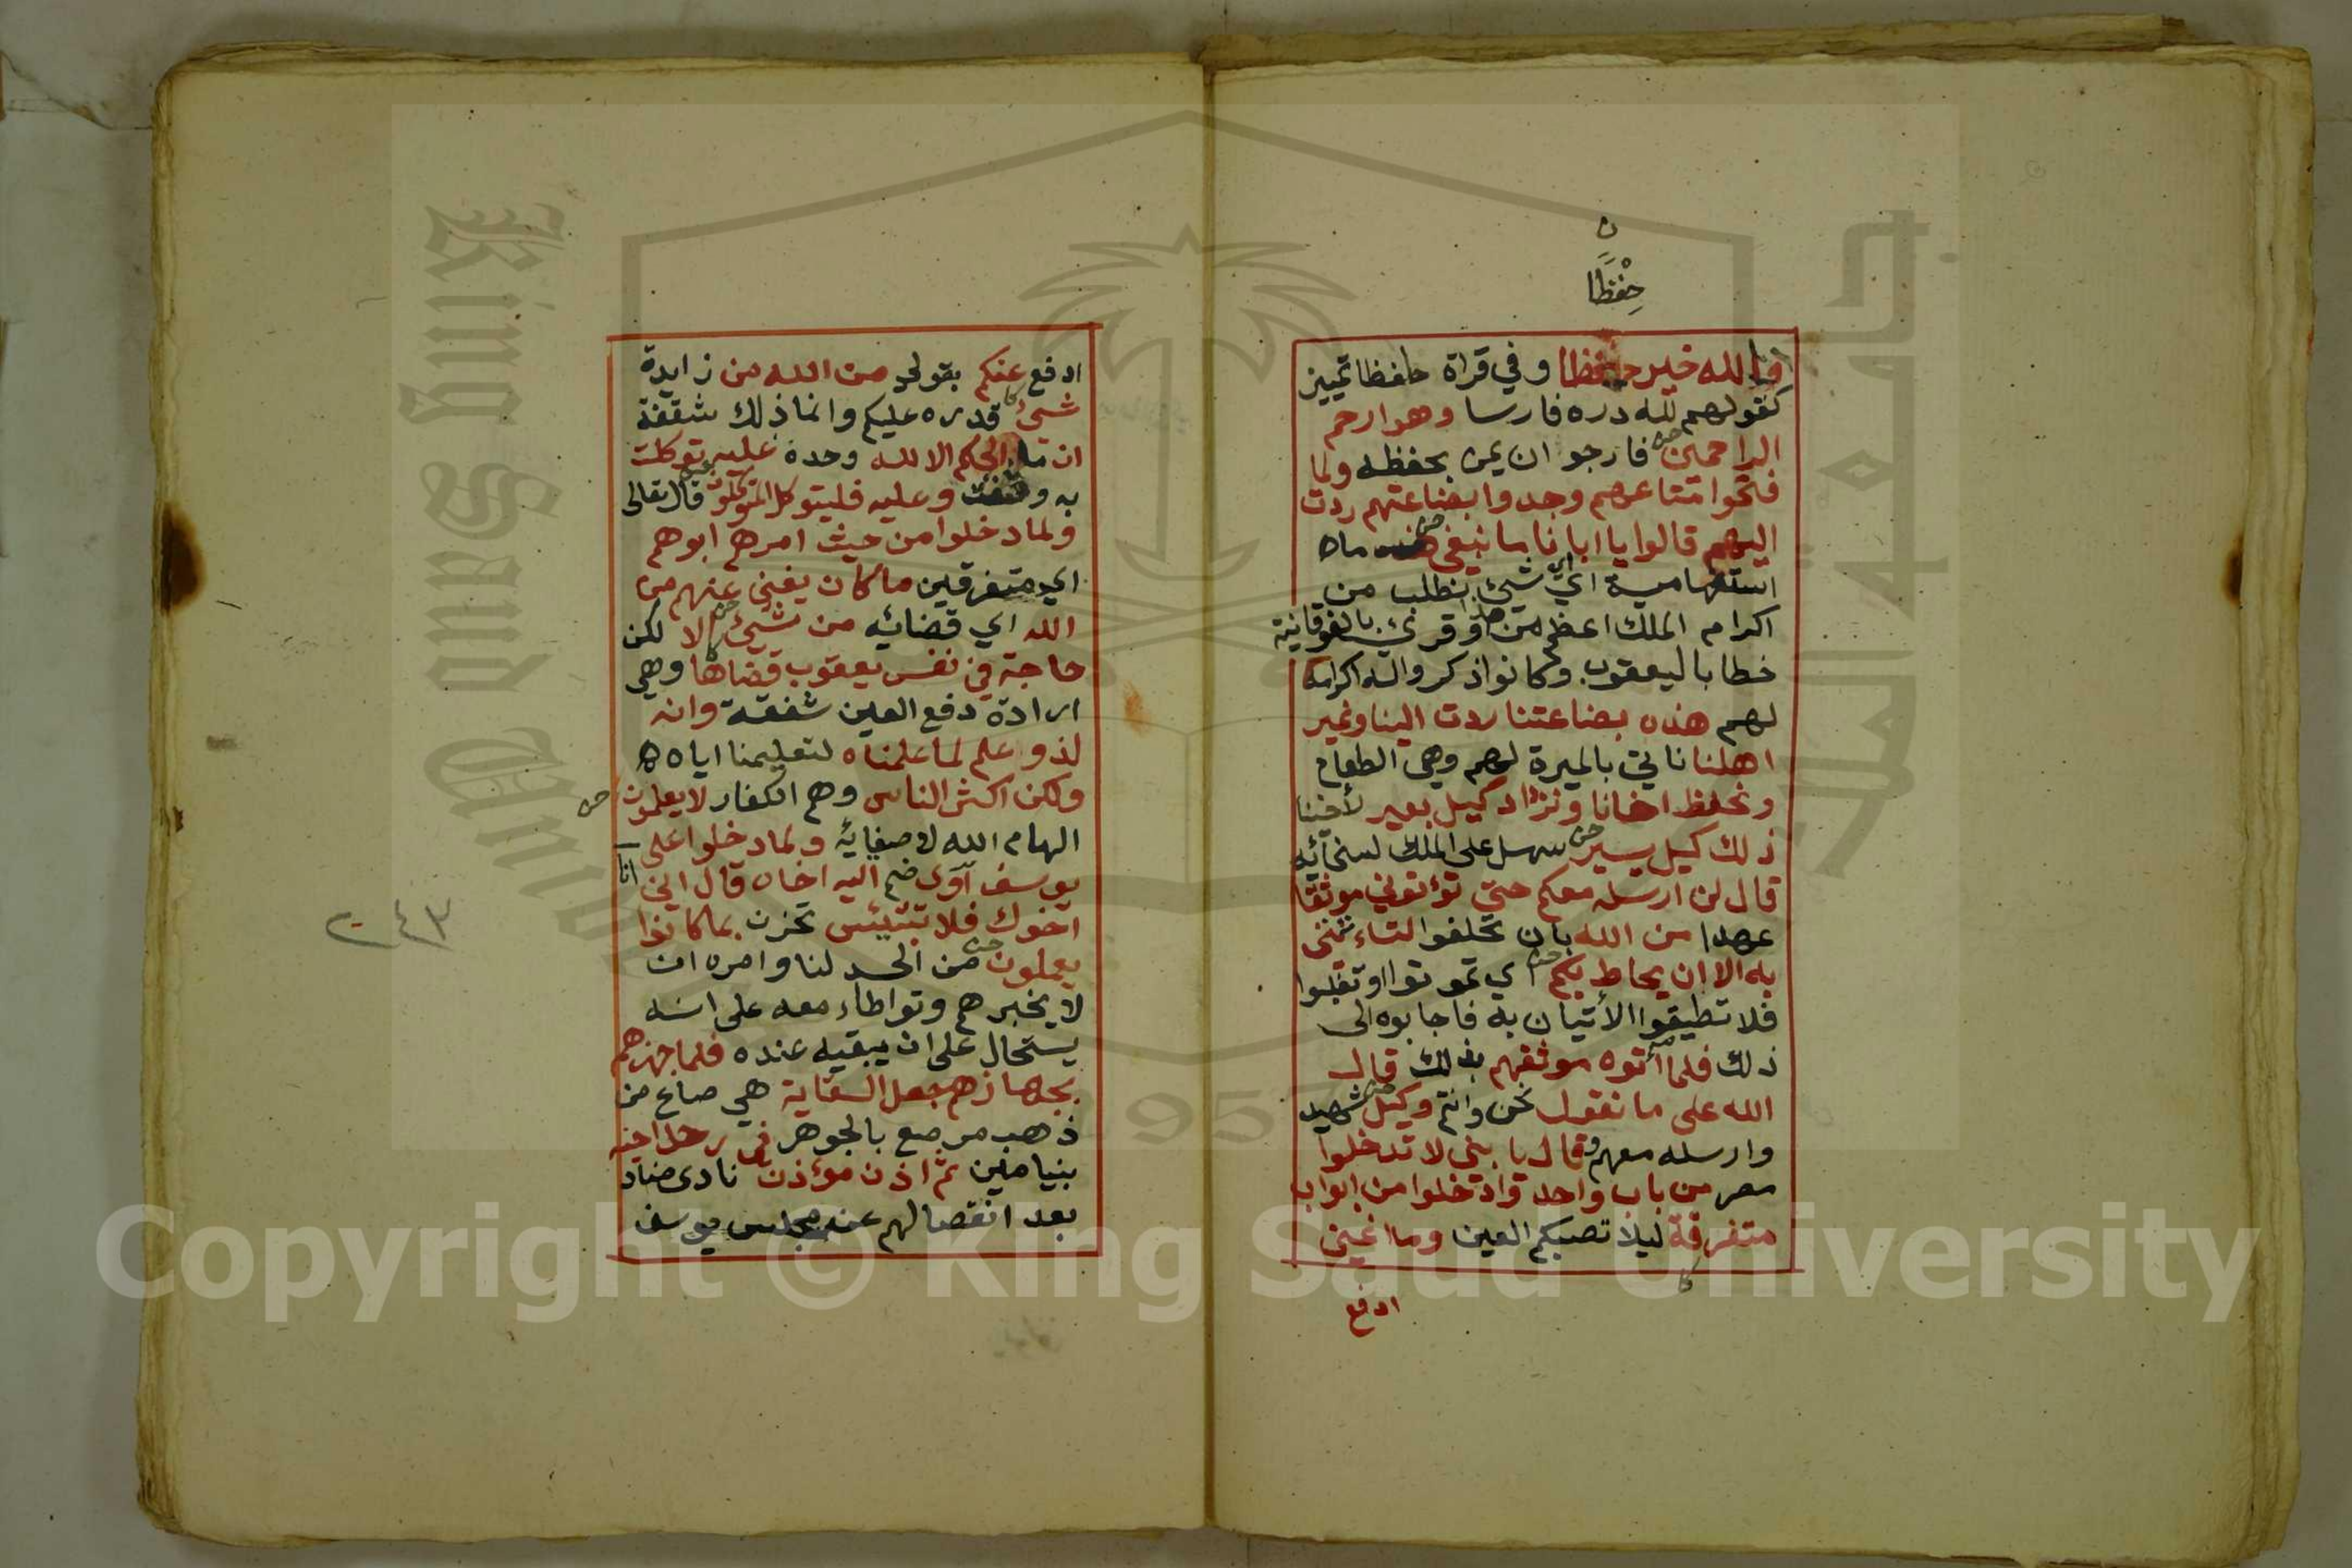 ن
حِفْظًا
فالله خير حفظا وفي قراة حافظا تمييز
كقولهم لله دره فارسا وهو ارحم
الراحمين فارجو ان يمن بحفظه ولما
فتحوا متاعهم وجدوا بضاعتهم ردت
اليهم قالوا يا ابانا ما نبغي ما
استفهامية اي اي شئ نطلب من
اكرام الملك اعظم من هذا وقرئ بالفوقانية
خطابا ليعقوب وكانوا ذكروا له اكرامه
لهم هذه بضاعتنا ردت الينا ونمير
اهلنا ناتي بالميرة لهم وهي الطعام
ونحفظ اخانا ونزداد كيل بعير لأخينا
ذلك كيل يسير سهل على الملك لسخائه
قال لن ارسله معكم حتى تؤتوني موثقا
عهدا من الله بان تحلفوا لتاءتنني
به الا ان يحاط بكم اي تموتوا او تغلبوا
فلا تطيقوا الأتيان به فاجابوه الى
ذلك فلما آتوه موثقهم بذلك قال
الله على ما نقول نحن وانتم وكيل شهيد
وارسله معهم وقال يا بني لا تدخلوا
مصر من باب واحد وادخلوا من ابواب
متفرقة ليلا تصبكم العين وما اغني
ادفع
ادفع عنكم بقولي من الله من زايدة
شئ قدره عليكم وانما ذلك شفقة
ان ما الحكم الا لله وحده عليه توكلت
به وثقت وعليه فليتوكل المتوكلون قال تعالى
ولما دخلوا من حيث امرهم ابوهم
اي متفرقين ما كان يغني عنهم من
الله اي قضائه من شيئ الا لكن
حاجة في نفس يعقوب قضاها وهي
ارادة دفع العين شفقة وانه
لذو علم لما علمناه لتعليمنا اياه
ولكن اكثر الناس وهم الكفار لا يعلمون
الهام الله لاصفيائه ولما دخلوا على
يوسف آوى ضم اليه اخاه قال اني انا
اخوك فلا تبتئس تحزن بما كانوا
يعملون من الحسد لنا وامره ان
لا يخبرهم وتواطاء معه على انه
يستحال على ان يبقيه عنده فلما جهزهم
بجهازهم جعل السقاية هي صاع من
ذهب مرصع بالجوهر في رحل اخيه
بنيامين ثم اذن مؤذن نادى مناد
بعد انفصالهم عن مجلس يوسف
٢٤٣
King Saud University
1957
Copyright © King Saud University